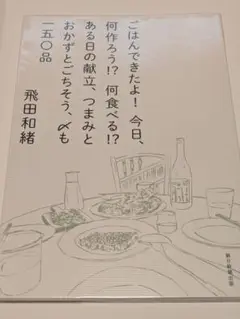 ごはんできたよ！ 今日、
何作ろう!? 何食べる!?
ある日の献立、つまみと
おかずとごちそう、〆も
一五〇品
飛田和緒
朝日新聞出版